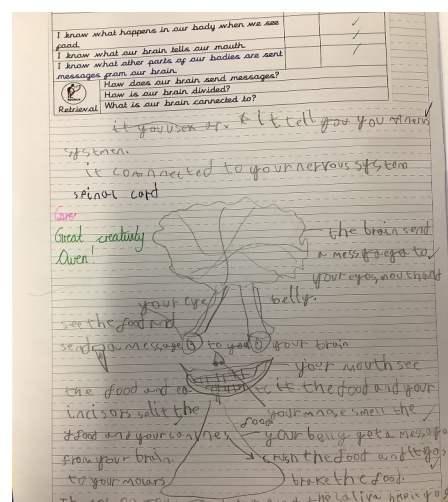 I know what happens in our body when we see
food.
I know what our brain tells our mouth.
I know what other parts of our bodies are sent
messages from our brain.
How does our brain send messages?
How is our brain divided?
Retrieval What is our brain connected to?
it you uses it. * it tell you you
systmen.
it comnected to your nervous system
spinal card
Great creativity
Owen!
the brain send
a message to
your eyes, mouth and
belly.
your eye
see the food and
send a message to you your brain
your mouth see
the food and eat it the food and your
incisors split the your nose smell the
food
food and your canines your belly get a message
from your brain. crush the food and it go
to your molars brake the food.